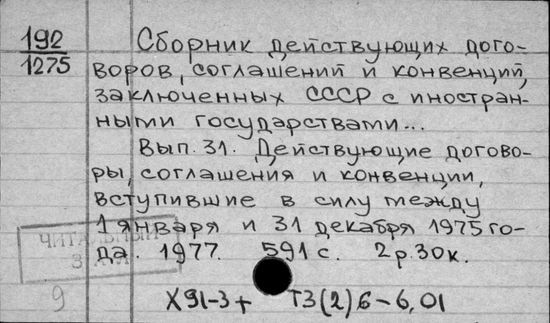 192
1275
Сборник действующих дого-
воров, соглашений и конвенций,
заключенных СССР с иностран-
ными государствами...
Вып. 31. Действующие догово-
ры, соглашения и конвенции,
вступившие в силу между
1 января и 31 декабря 1975 го-
да. 1977. 591 с. 2 р. 30 к.
ЧИТАЛЬНЫЙ
9
Х91-3+ Т3(2)6-6,01